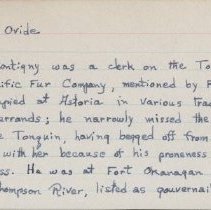 Ovide.
ontigny was a clerk on the To
ific Fur Company, mentioned by F
pied at Astoria in various tra
errands; he narrowly missed the
e Tonquin, having begged off from
with her because of his proneness
ss. He was at Fort Okanagan
hompson River, listed as gouvernail